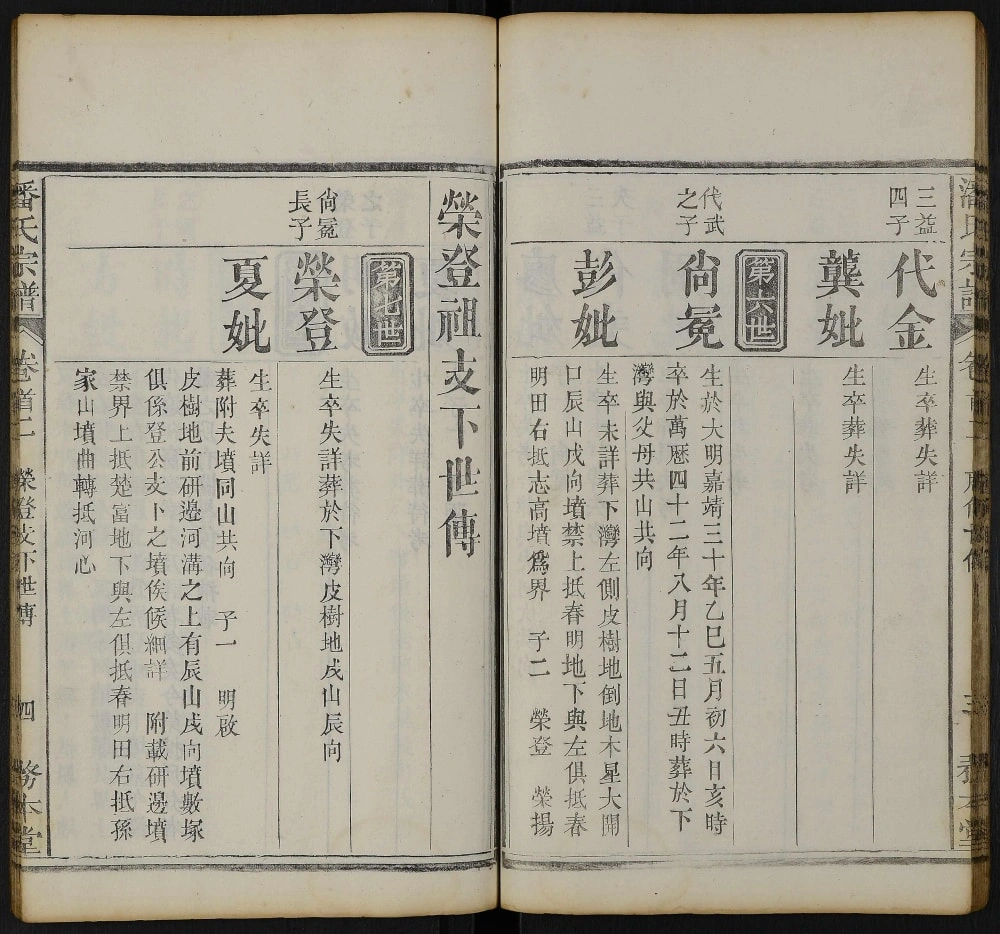 三益
四子
代金
生卒葬失詳
龔妣
生卒葬失詳
第六世
代武
之子
尙冕
生於大明嘉靖三十年乙巳五月初六日亥時
卒於萬厯四十二年八月十二日丑時葬於下
灣與父母共山共向
彭妣
生卒未詳葬下灣左側皮樹地倒地木星大開
口辰山戌向墳禁上抵春明地下與左俱抵春
明田右抵志高墳爲界 子二 榮登 榮揚
榮登祖支下世傳
第七世
尙冕
長子
榮登
生卒失詳葬於下灣皮樹地戌山辰向
夏妣
生卒失詳
葬附夫墳同山共向 子一 明啟
皮樹地前研邊河溝之上有辰山戌向墳數塚
俱係登公支下之墳俟候細詳 附載研邊墳
禁界上抵楚富地下與左俱抵春明田右抵孫
家山墳曲轉抵河心
潘氏宗譜
卷首二 榮登支下世傳
四 務本堂